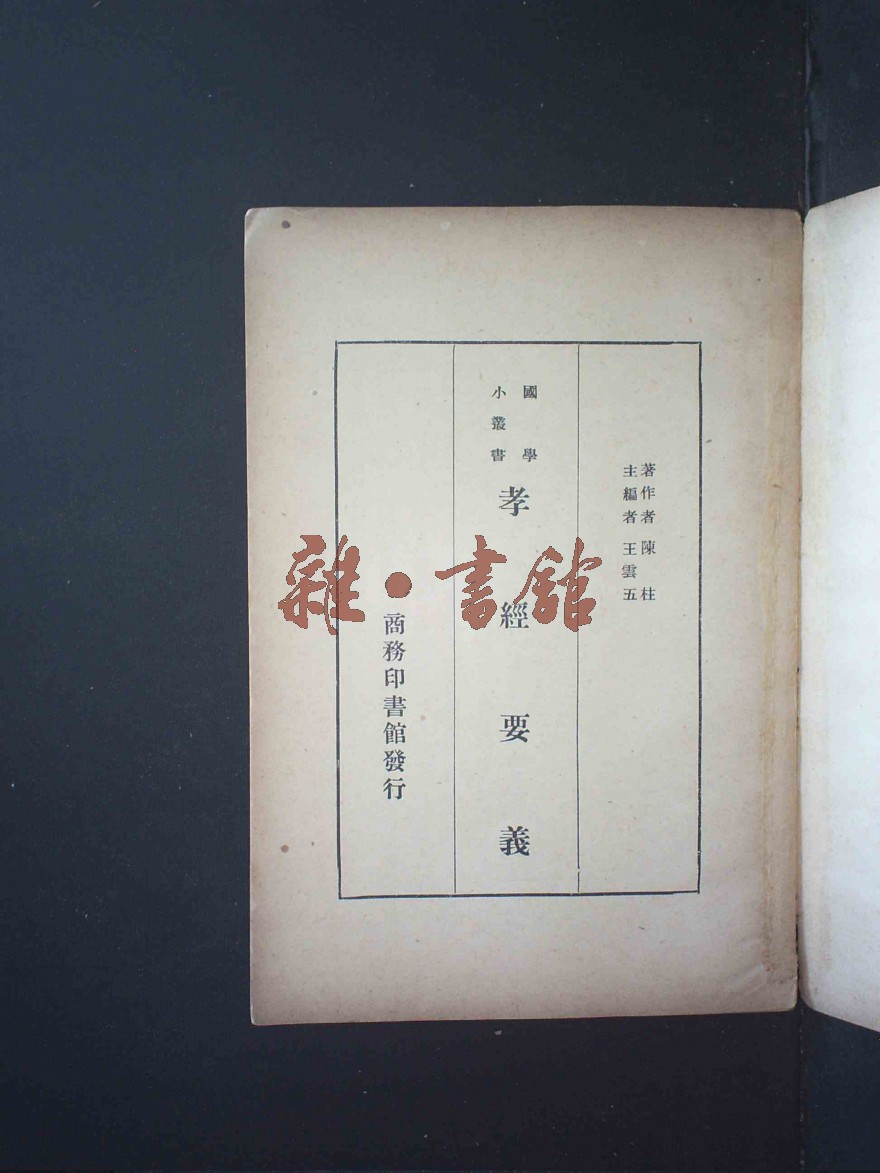 著作者 陳柱
主編者 王雲五
國學
小叢書
孝經要義
商務印書館發行
雜·書館